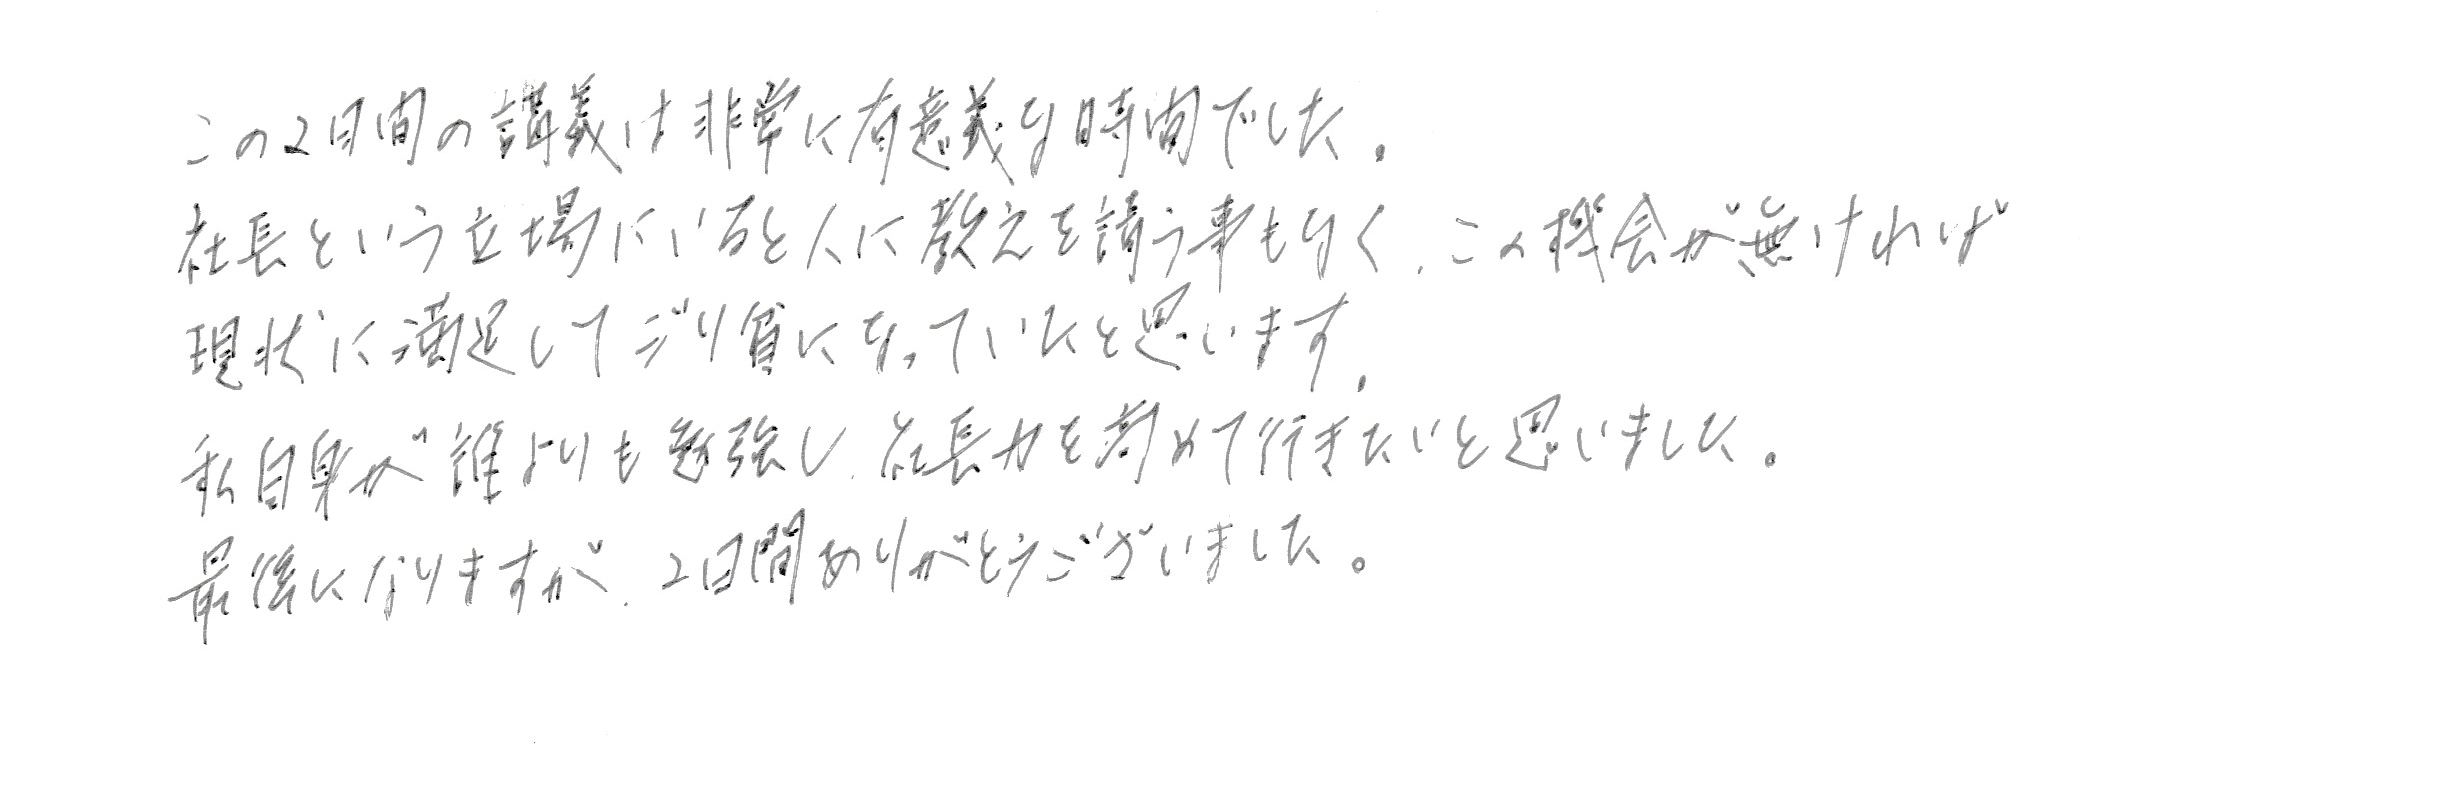 この2日間の講義は非常に有意義な時間でした。
社長という立場にいると人に教えを請う事もなく、この機会が無ければ
現状に満足してジリ貧になっていたと思います。
私自身が誰よりも勉強し、社長力を高めて行きたいと思いました。
最後になりますが、2日間ありがとうございました。